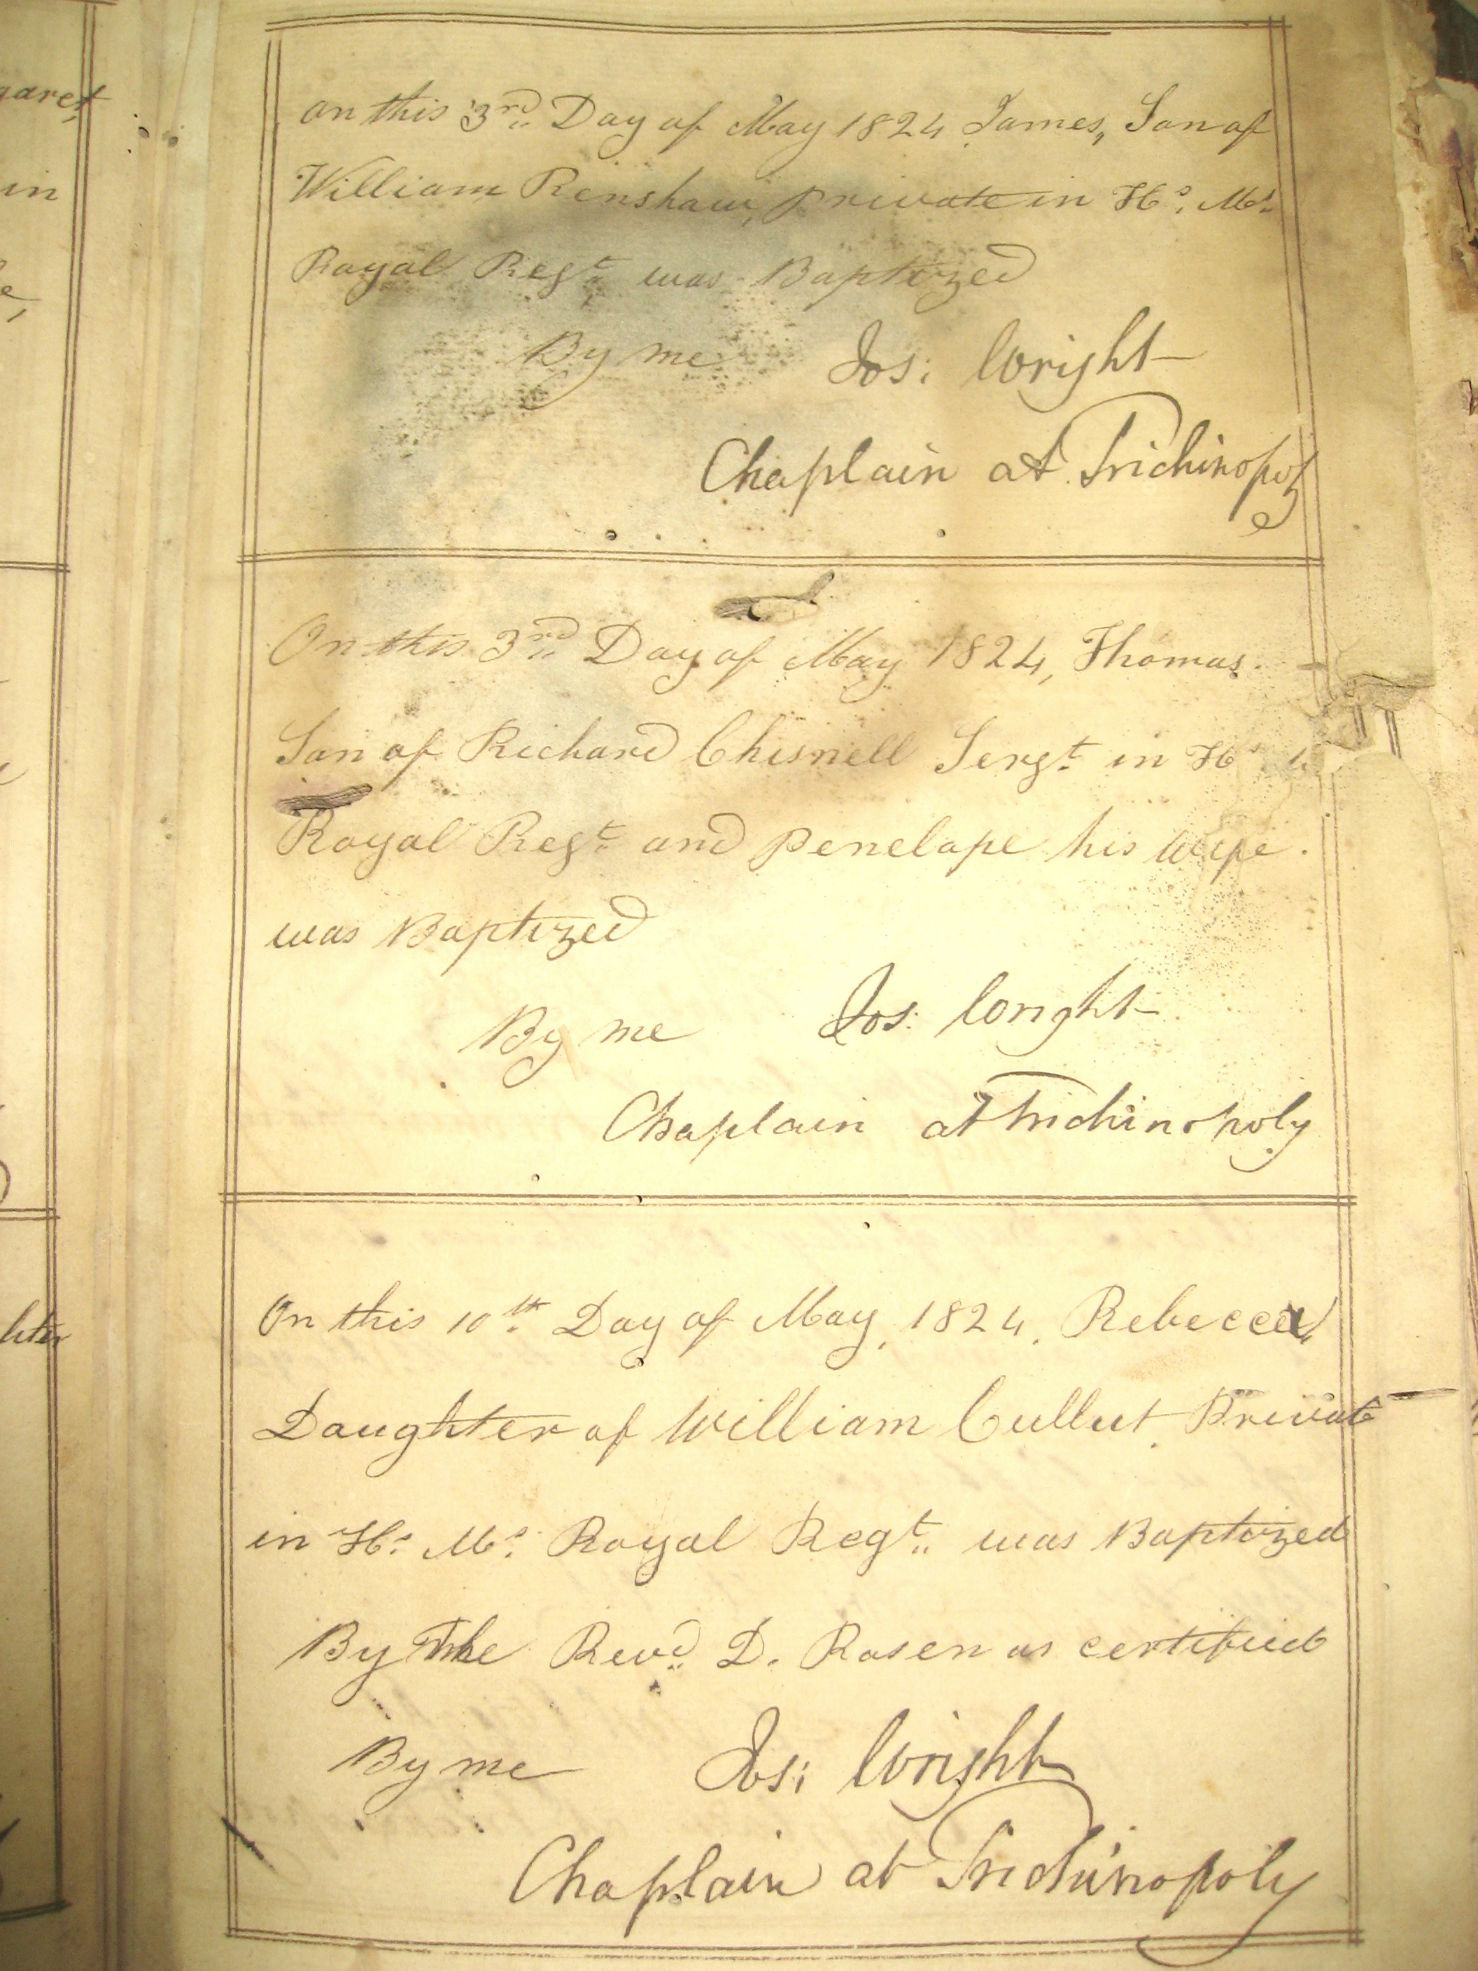 on this 3rd Day of May 1824 James, Son of
William Renshaw, private in Hs. Ms.
Royal Regt. was Baptized
By me Jos: Wright
Chaplain at Trichinopoly
On this 3rd Day of May 1824, Thomas.
Son of Richard Chisnell Sergt. in Hs
Royal Regt. and Penelope his wife.
was Baptized
By me Jos: Wright
Chaplain at Trichinopoly
On this 10th. Day of May, 1824. Rebecca,
Daughter of William Cullut. Private
in Hs. Ms. Royal Regt. was Baptized
By The Revd. D. Rosen as certified
By me Jos: Wright
Chaplain at Trichinopoly